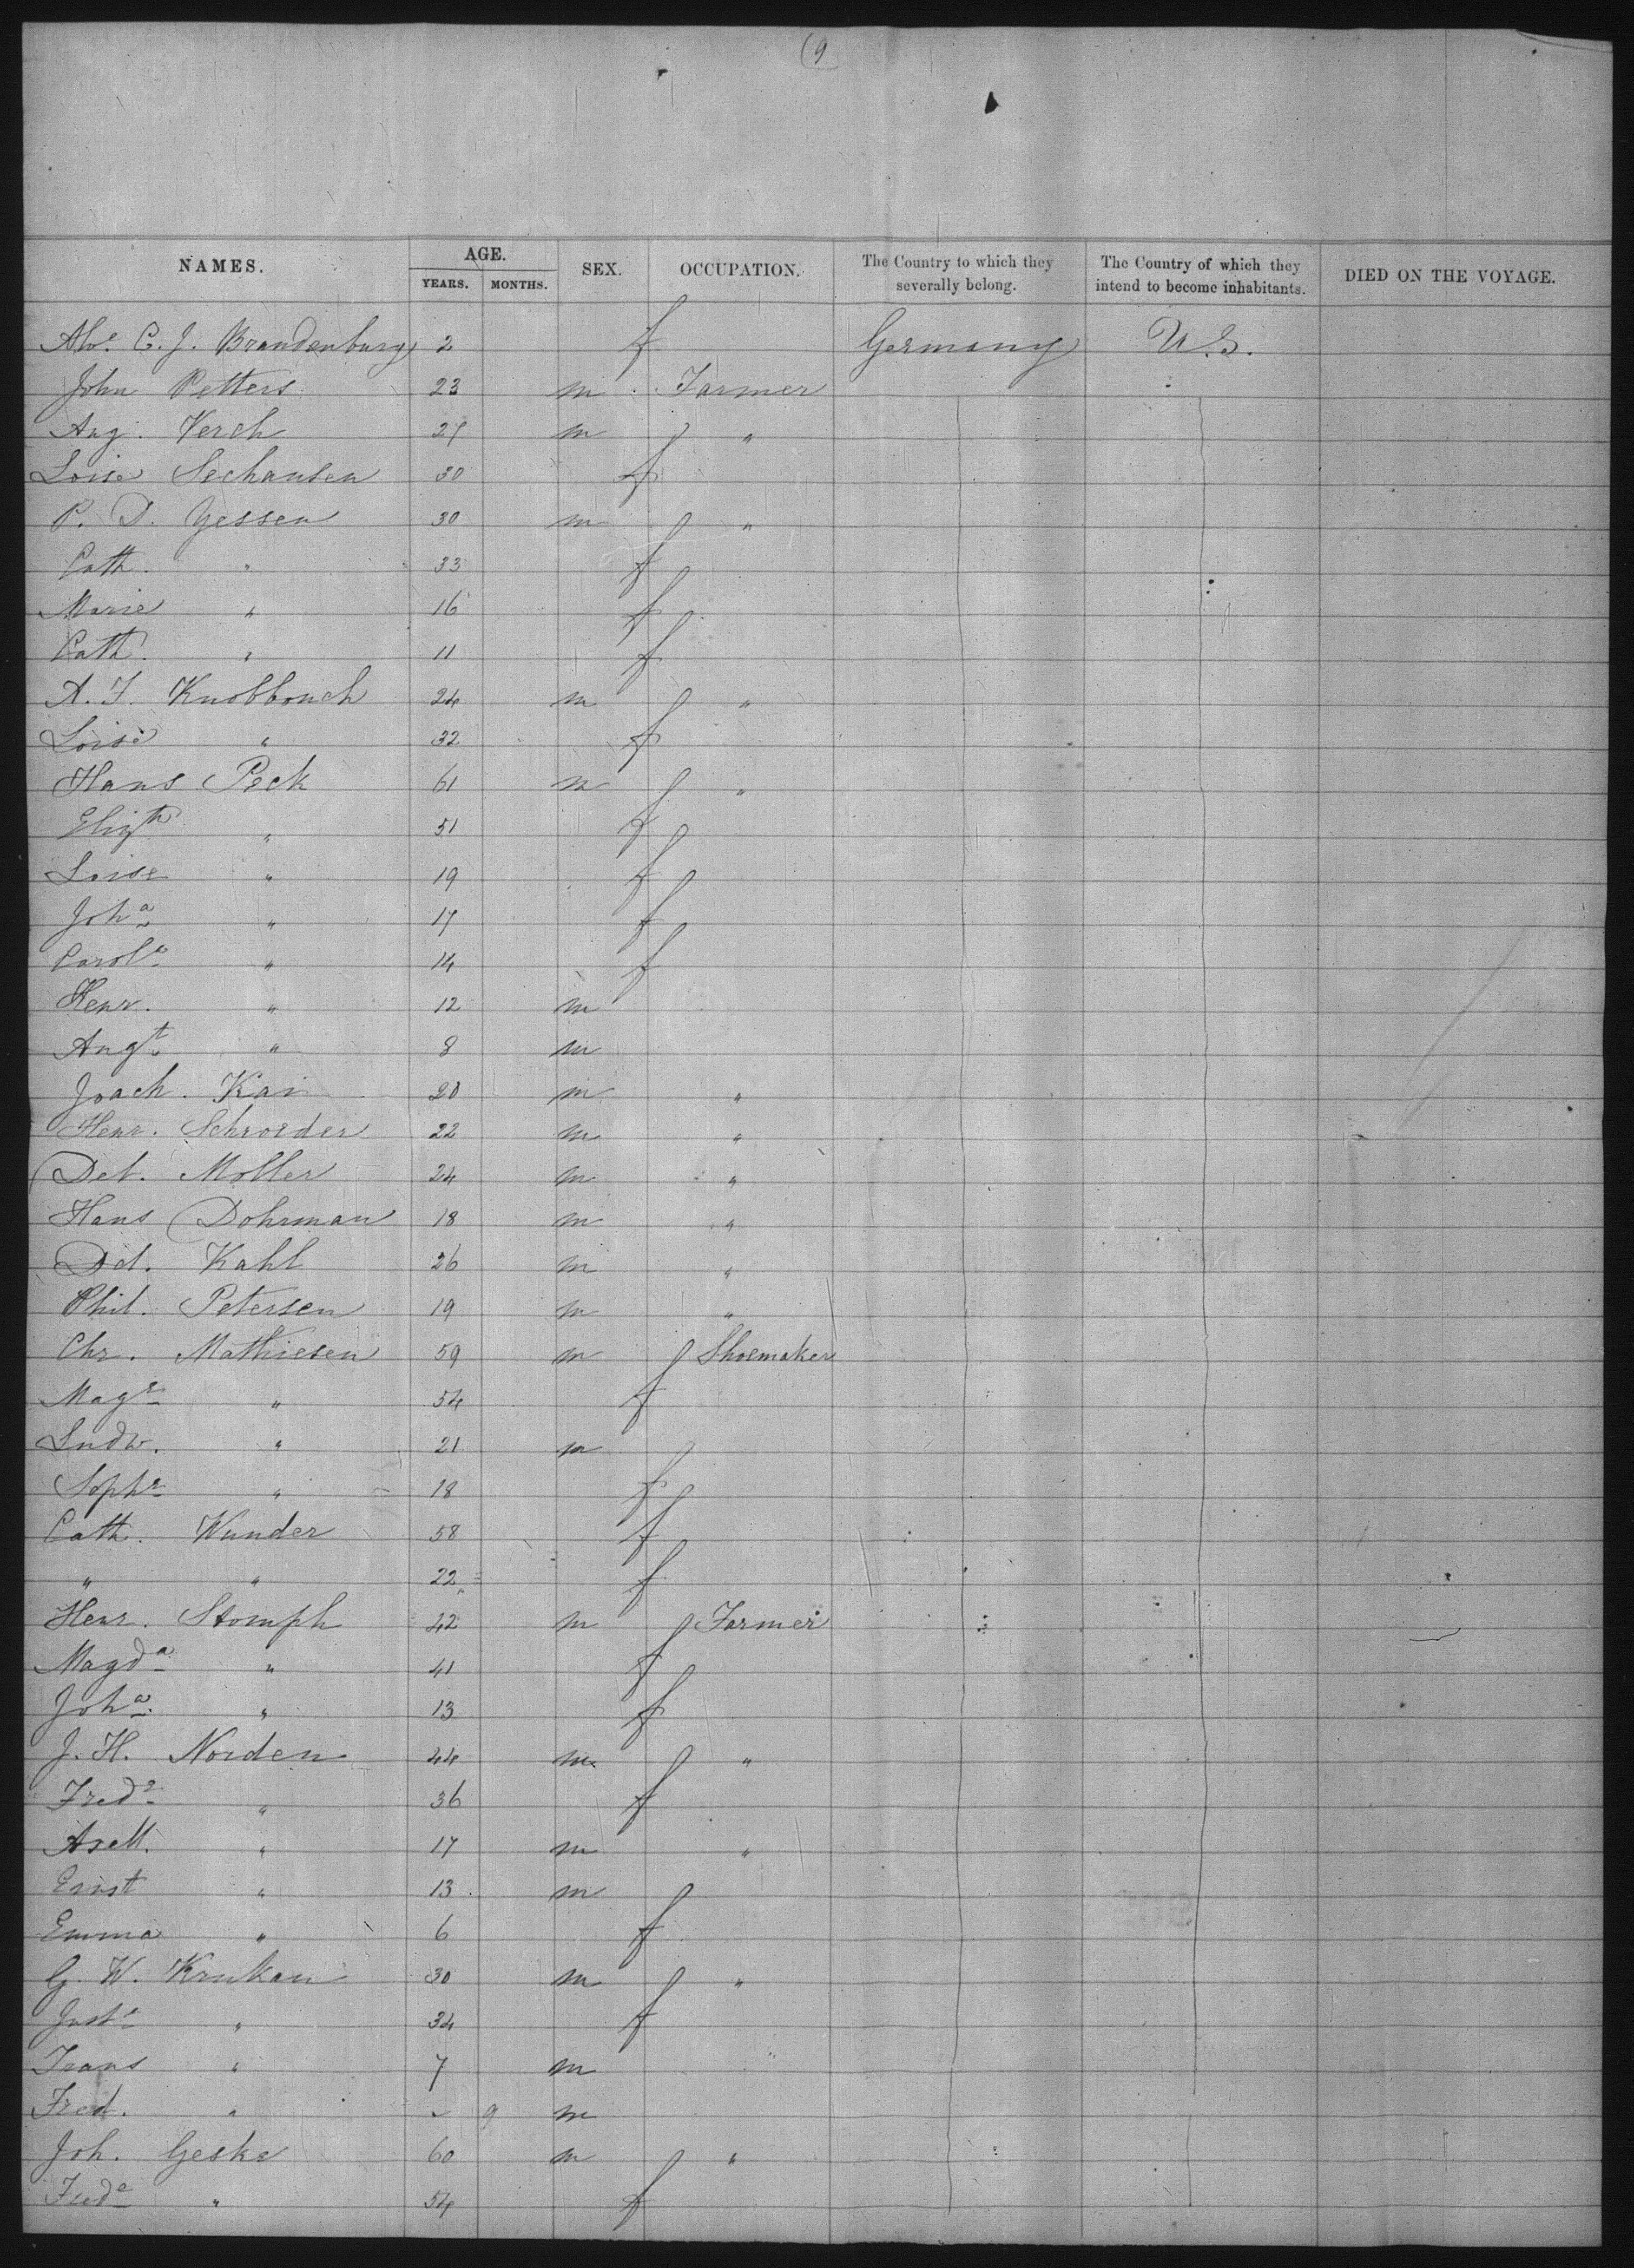 (9
NAMES. AGE. YEARS. MONTHS. SEX. OCCUPATION. The Country to which they severally belong. The Country of which they intend to become inhabitants. DIED ON THE VOYAGE.
C. J. Brandenburg 2 f Germany U.S.
John Petters 23 m Farmer
Aug. Verch 27 m "
Loise Sechausen 30 f
P. D. Yessen 30 m "
Cath. " 33 f
Marie " 16 f
Cath. " 11 f
A. F. Knobbouch 24 m "
Loise " 32 f
Hans Peck 61 m "
Elizth " 51 f
Loise " 19 f
Joha " 17 f
Carole " 14 f
Henr. " 12 m
Augt. " 8 m
Joach. Kai 20 m "
Henr. Schroeder 22 m "
Det. Moller 24 m "
Hans Dohrman 18 m "
Dd. Kahl 26 m "
Phil. Petersen 19 m "
Chr. Mathiesen 59 m Shoemaker
Mage " 54 f
Ludw. " 21 m
Sophe " 18 f
Cath. Wunder 58 f
" " 22 f
Henr. Stomph 42 m Farmer
Magda " 41 f
Joha. " 13 f
J. H. Norden 44 m "
Frede " 36 f
Axell. " 17 m "
Ernst " 13 m
Emma " 6 f
G. W. Krukau 30 m "
Juste " 34 f
Frans " 7 m
Fred. " - 9 m
Joh. Geske 60 m "
Frede " 54 f